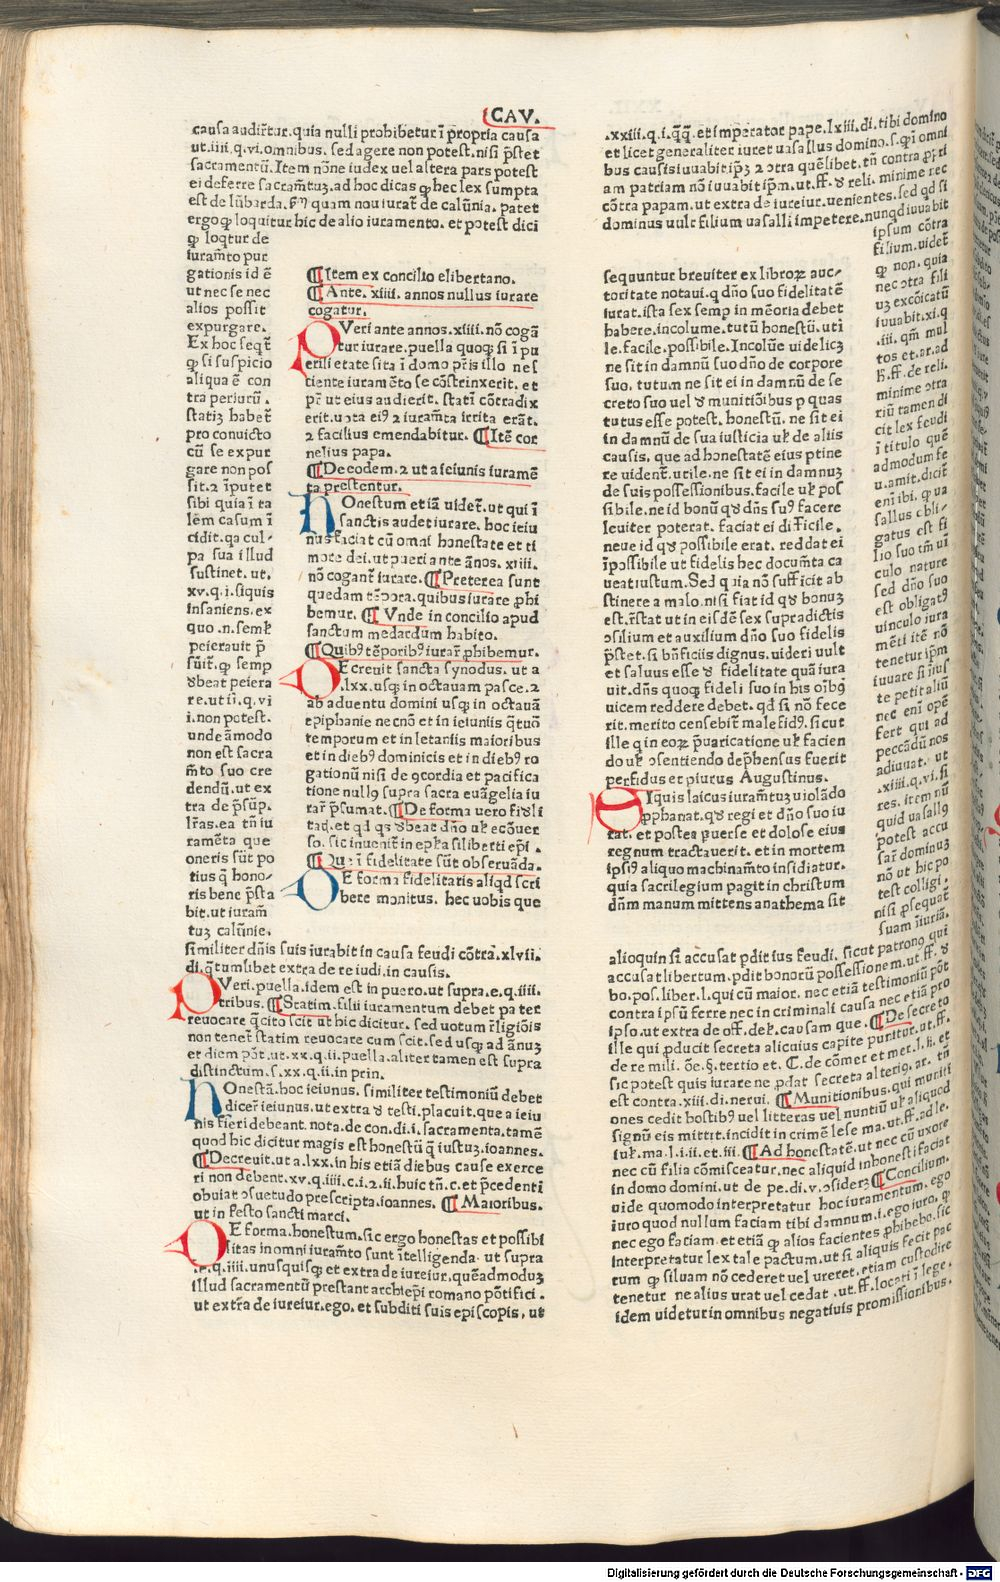 CAV.
causa audir̃tur. quia nulli prohibetur ĩ propria causa
ut. iiii. q. vi. omnibus. sed agere non potest. nisi p̃stet
sacramentũ. Item nõne iudex uel altera pars potest
ei deferre sacram̃tuꝫ. ad hoc dicas ꝙ hec lex sumpta
ergo ꝙ loquitur hic de alio iuramento. et potest dici
ꝙ loq̃tur de
iuram̃to pur
gationis id ẽ
ut nec se nec
alios possit
expurgare.
Ex hoc seqr̃
ꝙ si suspicio
aliqua ẽ con
tra periurũ.
statiꝫ habet̃
pro conuicto
cũ se expur
gare non pos
sit. ꝛ ĩputet
sibi quia ĩ ta
lẽm casum ĩ
cidit. qa cul-
pa sua illud
sustinet. ut.
xv. q. i. siquis
insaniens. ex
quo .n. semƚ
peierauit p̃
sũit. ꝙ semp
ꝺbeat peiera
re. ut ii. q. vi
i. non potest.
unde ãmodo
non est sacra
m̃to suo cre
dendũ. ut ex
tra de p̃sũp.
lr̃as. ea tñ iu
ramẽta que
oneris sũt po
tius q̃ hono-
ris bene p̃sta
bit. ut iuram̃
tuꝫ calũnie.
similiter dñis suis iurabit in causa feudi cõtra. xlvii.
di. q̃tumlibet extra de re iudi. in causis.
PVeri. puella. idem est in puero. ut supra. e. q. iiii.
tribus. ¶ Statim. filii iuramentum debet pater
reuocare q̃cito scit ut hic dicitur. sed uotum r̃ligiõis
non tenet̃ statim reuocare cum scit. sed usqꝫ ad ãnuꝫ
et diem põt. ut. xx. q. ii. puella. aliter tamen est supra
distinctum. s. xx. q. ii. in prin.
HOnestã. hoc ieiunus. similiter testimoniũ debet
dicer̃ ieiunus. ut extra ꝺ testi. placuit. que a ieiu
nis fieri debeant. nota. de con. di. i. sacramenta. tamẽ
quod hic dicitur magis est honestũ q̃ iustuꝫ. ioannes.
¶ Decreuit. ut a. lxx. in his etiã diebus cause exerce
ri non debent. xv. q. iiii. c. i. ꝛ. ii. huic tñ. c. et p̃cedenti
obuiat ↄsuetudo prescripta. ioannes. ¶ Maioribus.
ut in festo sancti marci.
DE forma. honestum. sic ergo honestas et possibi
litas in omni iuram̃to sunt ĩtelligenda. ut supra
.e. q. iiii. unusquisqꝫ et extra de iureiur. quẽadmoduꝫ
illud sacramentũ prestant archiepĩ romano põtifici.
ut extr̃a de iureiur. ego. et subditi suis episcopis. ut
¶ Item ex concilio elibertano.
¶ Ante. xiiii. annos nullus iurare
cogatur.
PVeri ante annos. xiiii. nõ cogã
tur iurare. puella quoqꝫ si ĩ pu
erili etate sita ĩ domo pr̃is illo nes
ciente iuramẽto se cõstrinxerit. et
pr̃ ut eius audierit. statĩ cõtradix
erit. uota eiꝰ ꝛ iuram̃ta irrita erãt.
ꝛ facilius emendabitur. ¶ Itẽ cor
nelius papa.
¶ De eodem. ꝛ ut a ieiunis iuramẽ
ta prestentur.
HOnestum etiã uidet̃. ut qui ĩ
sanctis audet iurare. hoc ieiu
nus faciat cũ omni honestate et ti
more dei. ut pueri ante ãnos. xiiii.
nõ cogant̃ iurare. ¶ Preterea sunt
quedam tẽpora. quibus iurare ꝓhi
bemur. ¶ Vnde in concilio apud
sanctum medardum habito.
¶ Quibꝰ tẽporibꝰ iurar̃ ꝓhibemur.
DEcreuit sancta synodus. ut a
.lxx. usqꝫ in octauam pasce. ꝛ
ab aduentu domini usqꝫ in octauã
epiphanie necnõ et in ieiuniis q̃tuõ
temporum et in letaniis maioribus
et in diebꝰ dominicis et in diebꝰ ro
gationũ nisi de ꝯcordia et pacifica
tione nullꝰ supra sacra euãgelia iu
rar̃ p̃sumat. ¶ De forma uero fiꝺ̃li
so. sic inuenit̃ in epƚa filiberti epĩ.
¶ Que ĩ fidelitate sũt obseruãda.
DE forma fidelitatis aliqd scri
bere monitus. hec uobis que
.xxiii. q. i. q̃q̃. et imperator pape. lxiii. di. tibi domino
et licet generaliter iuret uasallus domino. s. q̃ ĩ omni
bus causis iuuabit ip̃ꝫ ꝛ ↄtra quẽlibet. tñ contra ꝓp̃ri
am patriam nõ iuuabit ip̃m. ut. ff. ꝺ reli. minime rec
cõtra papam. ut extra de iureiur. uenientes. sed qd si
dominus uult filium uasalli impetere. nunqd iuuabit
ipsum cõtra
filium. uidet̃
ꝙ non. quia
nec ↄtra fili
uꝫ excõicatũ
iuuabit. xi. q
.iii. qm̃ mul
tos et. ar. ad
h. ff. de reli.
minime ↄtra
riũ tamen di
cit lex feudi
ĩ titulo quẽ
admodum fe
u. amit. dicit̃
enĩ ibi. ꝙ ua
sallus obli-
gatus est fi
lio suo tm̃ uĩ
culo nature
sed dño suo
est obligatꝰ
uinculo iura
mẽti itẽ nõ
tenetur ip̃m
iuuare si ĩius
te petit aliũ
nec enĩ opẽ
fert qui ad
peccãdũ nos
adiuuat. ut
.xiiii. q. vi. si
res. item nũ
quid uasallꝰ
potest accu
sar̃ dominuꝫ
nõ ut hic po
test colligi.
nisi ꝓsequat̃
suam ĩiuriã.
sequuntur breuiter ex libroꝝ auc-
toritate notaui. q dño suo fidelitatẽ
iurat. ista sex semp in mẽoria debet
habere. incolume. tutũ honestũ. uti
le. facile. possibile. Incolũe uidelicꝫ
ne sit in damnũ suo dño de corpore
suo. tutum ne sit ei in damnũ de se
creto suo uel ꝺ munitiõibus p quas
tutus esse potest. honestũ. ne sit ei
in damnũ de sua iusticia uƚ de aliis
causis. que ad honestatẽ eius ptine
re uident̃. utile. ne sit ei in damnuꝫ
de suis possessionibus. facile uƚ pos
sibile. ne id bonũ qꝺ dñs suꝰ facere
leuiter poterat. faciat ei difficile.
neue id qꝺ possibile erat. reddat ei
ĩpossibile ut fidelis hec docum̃ta ca
ueat iustum. Sed quia nõ sufficit ab
stinere a malo. nisi fiat id qꝺ bonuꝫ
est. r̃stat ut in eisdẽ sex supradictis
ↄsilium et auxilium dño suo fidelis
p̃stet. si bñficiis dignus. uideri uult
et saluus esse ꝺ fidelitate quã iura
uit. dñs quoqꝫ fideli suo in his oĩbꝰ
uicem reddere debet. qd si nõ fece
rit. merito censebit̃ malefidꝰ. sicut
ille q in eoꝝ p̃uaricatione uƚ facien
do uƚ ↄsentiendo dep̃hensus fuerit
perfidus et piurus Augustinus.
SIquis laicus iuram̃tuꝫ uiolãdo
ꝓphanat. qꝺ regi et dño suo iu
rat. et postea puerse et dolose eius
regnum tractauerit. et in mortem
ipsiꝰ aliquo machinam̃to insidiatur.
quia sacrilegium pagit in christum
dñm manum mittens anathema sit
alioquin si accusat pditus feudi. sicut patronꝰ qui
accusat libertum. pdit bonorũ possessionem. ut. ff. ꝺ
bo. pos. liber. l. qui cũ maior. nec etiã testimoniũ põt
contra ipsũ ferre nec in criminali causa nec etiã pro
ipso. ut extra de off. deƚ. causam que. ¶ De secreto
ille qui ꝓducit secreta alicuius capite punitur. ut. ff.
de re mili. õe. §. tertio et. C. de cõmer et mer. l. ii. et
sic potest quis iurare ne ꝓdat secreta alteriꝰ. ar. tñ
est contra. xiii. di. nerui. ¶ Munitionibus. qui muniti
ones cedit hostibꝰ uel litteras uel nuntiũ uƚ aliquod
signũ eis mittit. incidit in crimẽ lese ma. ut. ff. ad. le.
iuƚ. ma. l. i. ii. et. iii. ¶ Ad honestatẽ. ut nec cũ uxore
nec cũ filia cõmisceatur. nec aliquid inhonesti faciat
in domo domini. ut de pe. di. v. ↄsiderꝫ ¶ Concilium.
uide quomodo interpretatur hoc iuramentum. ego
iuro quod nullum faciam tibi damnum. i. ego iuro. ꝙ
nec ego faciam. et etiã ꝙ alios facientes ꝓhibebo. sic
interpretatur lex tale pactum. ut si aliquis fecit pac
tum ꝙ siluam nõ cederet uel ureret. etiam custodire
tenetur ne alius urat uel cedat. ut. ff. locati ĩ lege.
idem uidetur in omnibus negatiuis promissionibus.
Digitalisierung gefördert durch die Deutsche Forschungsgemeinschaft - DFG